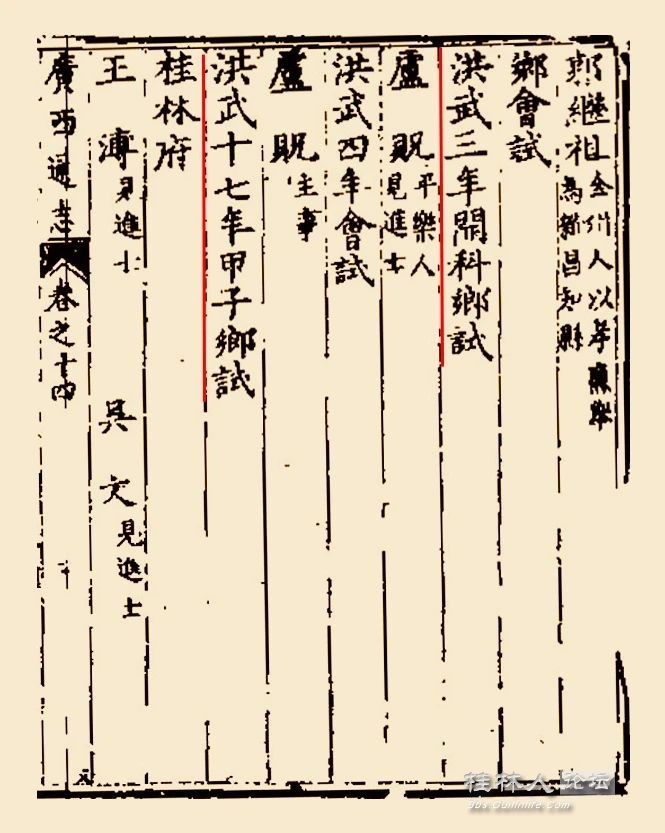 郭繼祖全州人以孝廉舉
為都昌知縣
鄉會試
洪武三年開科鄉試
盧貺平樂人
見進士
洪武四年會試
盧貺主事
洪武十七年甲子鄉試
桂林府
王溥見進士 吳文見進士
廣西通志 卷之十四
桂林人论坛
bbs.Guilinlife.Com